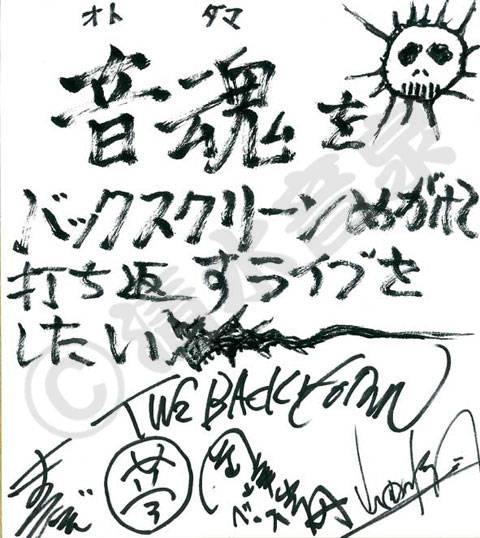 オト ダマ
音魂を
バックスクリーンめがけて
打ち返すライブを
したい
THE BACK HORN
ベース
©清水音泉